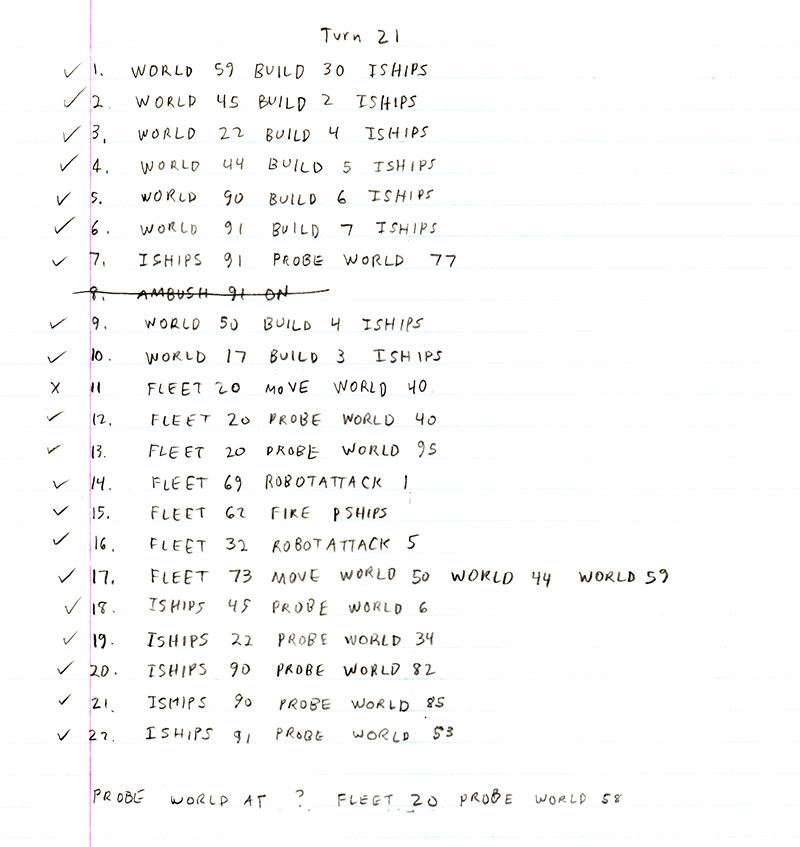 Turn 21
✓ 1. WORLD 59 BUILD 30 ISHIPS
✓ 2. WORLD 45 BUILD 2 ISHIPS
✓ 3. WORLD 22 BUILD 4 ISHIPS
✓ 4. WORLD 44 BUILD 5 ISHIPS
✓ 5. WORLD 90 BUILD 6 ISHIPS
✓ 6. WORLD 91 BUILD 7 ISHIPS
✓ 7. ISHIPS 91 PROBE WORLD 77
8. AMBUSH 91 ON
✓ 9. WORLD 50 BUILD 4 ISHIPS
✓ 10. WORLD 17 BUILD 3 ISHIPS
X 11 FLEET 20 MOVE WORLD 40
✓ 12. FLEET 20 PROBE WORLD 40
✓ 13. FLEET 20 PROBE WORLD 95
✓ 14. FLEET 69 ROBOTATTACK 1
✓ 15. FLEET 62 FIRE PSHIPS
✓ 16. FLEET 32 ROBOTATTACK 5
✓ 17. FLEET 73 MOVE WORLD 50 WORLD 44 WORLD 59
✓ 18. ISHIPS 45 PROBE WORLD 6
✓ 19. ISHIPS 22 PROBE WORLD 34
✓ 20. ISHIPS 90 PROBE WORLD 82
✓ 21. ISHIPS 90 PROBE WORLD 85
✓ 22. ISHIPS 91 PROBE WORLD 53
PROBE WORLD AT ? FLEET 20 PROBE WORLD 58